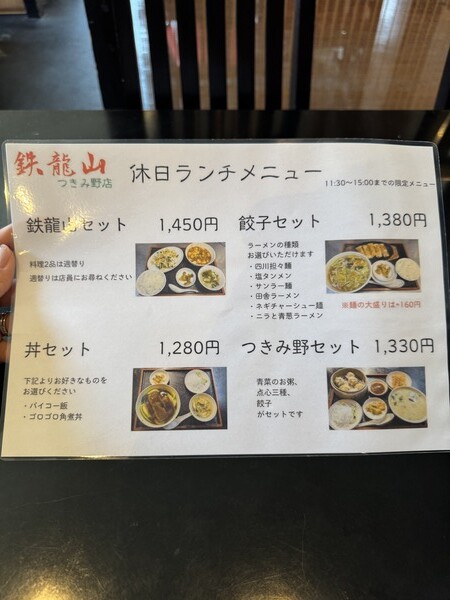 鉄龍山
つきみ野店
休日ランチメニュー
11:30～15:00までの限定メニュー
鉄龍山セット 1,450円
料理2品は週替り
週替りは店員にお尋ねください
餃子セット 1,380円
ラーメンの種類
お選びいただけます
・四川担々麺
・塩タンメン
・サンラー麺
・田舎ラーメン
・ネギチャーシュー麺
・ニラと青葱ラーメン
※麺の大盛りは+160円
丼セット 1,280円
下記よりお好きなものを
お選びください
・パイコー飯
・ゴロゴロ角煮丼
つきみ野セット 1,330円
青菜のお粥、
点心三種、
餃子
がセットです